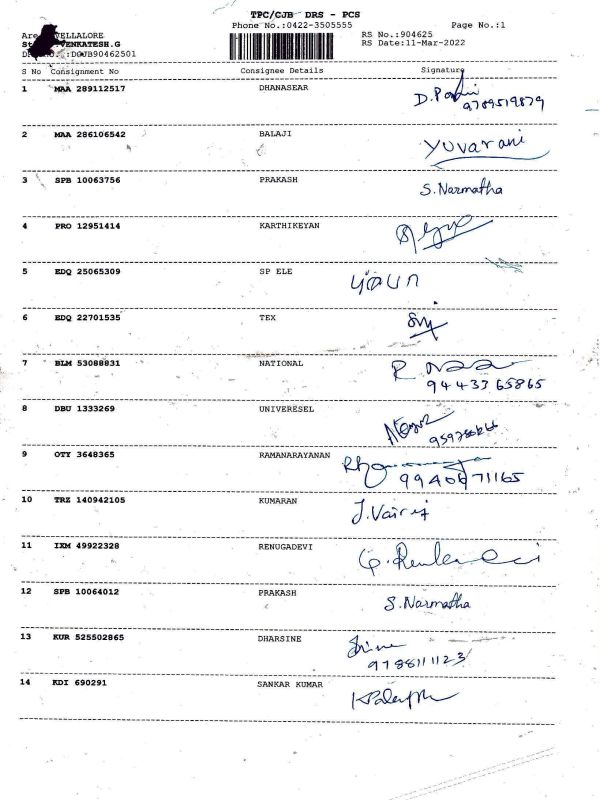 TPC/CJB DRS - PCS
Phone No.:0422-3505555 Page No.:1
VELLALORE RS No.:904625
VENKATESH.G RS Date:11-Mar-2022
:DCJB90462501
S No Consignment No Consignee Details Signature
1 MAA 289112517 DHANASEAR
9789519879
2 MAA 286106542 BALAJI Yuvarani
3 SPB 10063756 PRAKASH S. Narmatha
4 PRO 12951414 KARTHIKEYAN
5 EDQ 25065309 SP ELE
6 EDQ 22701535 TEX
7 BLM 53088831 NATIONAL
9443365865
8 DBU 1333269 UNIVERESEL
9 OTY 3648365 RAMANARAYANAN
10 TRZ 140942105 KUMARAN
11 IXM 49922328 RENUGADEVI
12 SPB 10064012 PRAKASH S. Narmatha
13 KUR 525502865 DHARSINE
9788111123
14 KDI 690291 SANKAR KUMAR